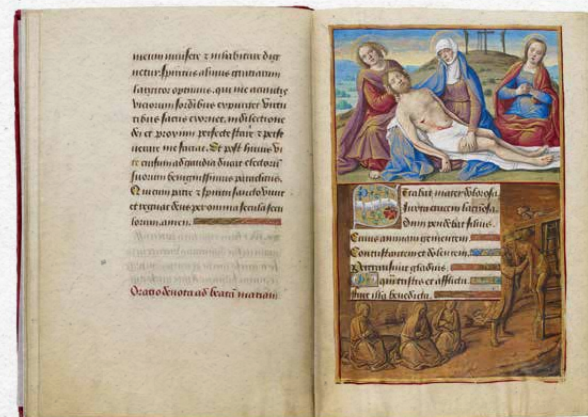 meum invisere z inhabitare dig
netur spiritus almus gratiarum
largitor optimus. qui me
viciorum sordibus virtu
tibus in dilectione
dei et proximi perfecte stare z perse
verare me faciat. Et post huius vi
te cursum ad gaudia ducat electorum
suorum benignissimus paraclitus.
Qui cum patre z spiritu sancto vivit
et regnat deus per omnia secula secu
lorum. amen.
Oratio devota ad beatam mariam
Stabat mater dolorosa.
Iuxta crucem lacrimosa.
Dum pendebat filius.
Cuius animam gementem.
Contristantem et dolentem.
Pertransivit gladius.
O quam tristis et afflicta
fuit illa benedicta.